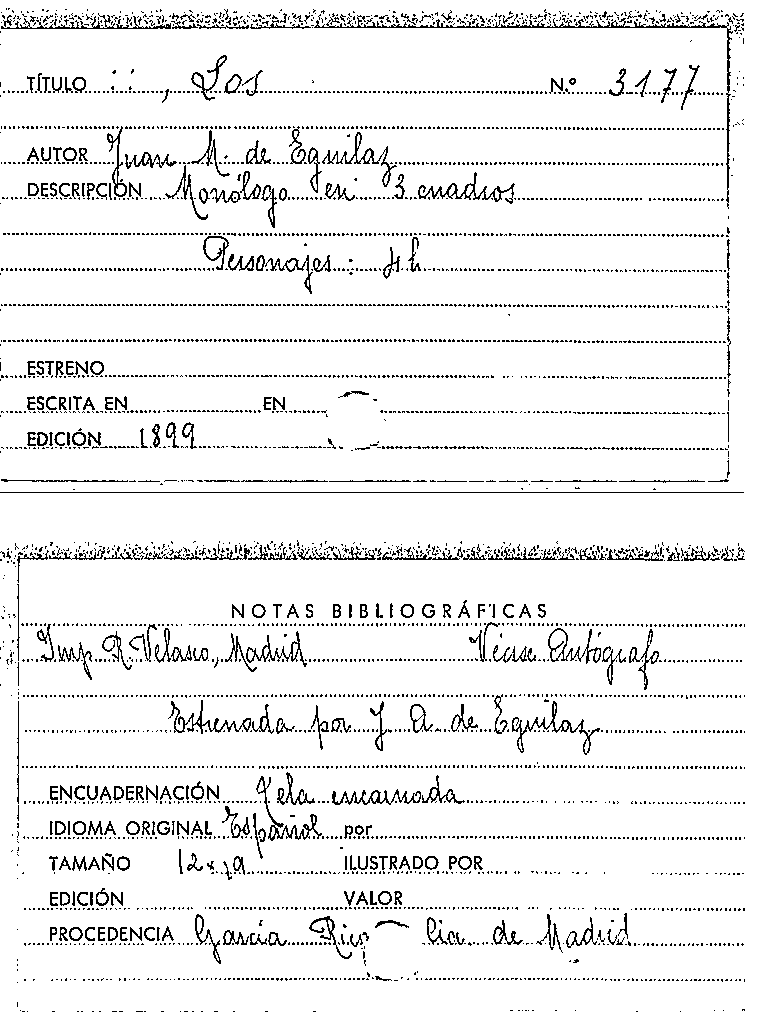 TÍTULO : : , Los N.º 3177
AUTOR Juan M. de Eguilaz
DESCRIPCIÓN Monólogo en 3 cuadros
Personajes : 4 h
ESTRENO
ESCRITA EN EN
EDICIÓN 1899
NOTAS BIBLIOGRÁFICAS
Imp. R. Velasco, Madrid Véase Autógrafo
Estrenada por J. A. de Eguilaz
ENCUADERNACIÓN Tela encarnada
IDIOMA ORIGINAL Español por
TAMAÑO 12 x 19 ILUSTRADO POR
EDICIÓN VALOR
PROCEDENCIA García Rico Cia de Madrid